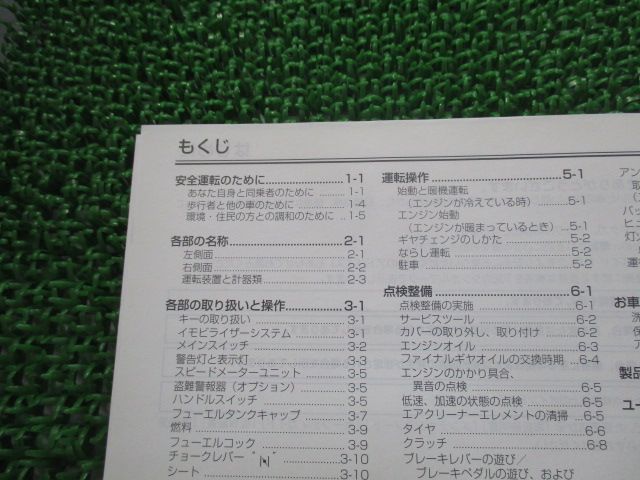 もくじ
安全運転のために 1-1
あなた自身と同乗者のために 1-1
歩行者と他の車のために 1-4
環境・住民の方との調和のために 1-5
各部の名称 2-1
左側面 2-1
右側面 2-2
運転装置と計器類 2-3
各部の取り扱いと操作 3-1
キーの取り扱い 3-1
イモビライザーシステム 3-1
メインスイッチ 3-2
警告灯と表示灯 3-3
スピードメーターユニット 3-5
盗難警報器（オプション） 3-5
ハンドルスイッチ 3-5
フューエルタンクキャップ 3-7
燃料 3-9
フューエルコック 3-9
チョークレバー 3-10
シート 3-10
運転操作 5-1
始動と暖機運転
（エンジンが冷えている時） 5-1
エンジン始動
（エンジンが暖まっているとき） 5-1
ギヤチェンジのしかた 5-2
ならし運転 5-2
駐車 5-2
点検整備 6-1
点検整備の実施 6-1
サービスツール 6-2
カバーの取り外し、取り付け 6-2
エンジンオイル 6-3
ファイナルギヤオイルの交換時期 6-4
エンジンのかかり具合、
異音の点検 6-5
低速、加速の状態の点検 6-5
エアクリーナーエレメントの清掃 6-5
タイヤ 6-6
クラッチ 6-8
ブレーキレバーの遊び／
ブレーキペダルの遊び、および
アン
取
バッ
ヒュ
灯
運
お車
洗
保
製品
ユー